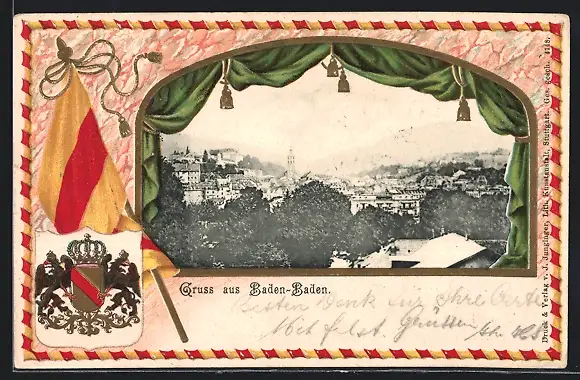 Gruss aus Baden-Baden.
Besten Dank für Ihre Karte
Mit frdl. Grüssen
Druck & Verlag v. J. Junginger, Lith. Kunstanstalt, Stuttgart. Ges. gesch. 1118.